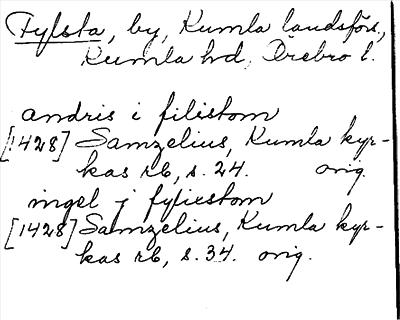 Fylsta, by, Kumla landsförs.,
Kumla hd, Örebro l.
andris i filistom
[1428] Samzelius, Kumla kyr-
kas rb, s. 24. orig.
ingel j fyliestom
[1428] Samzelius, Kumla kyr-
kas rb, s. 34. orig.